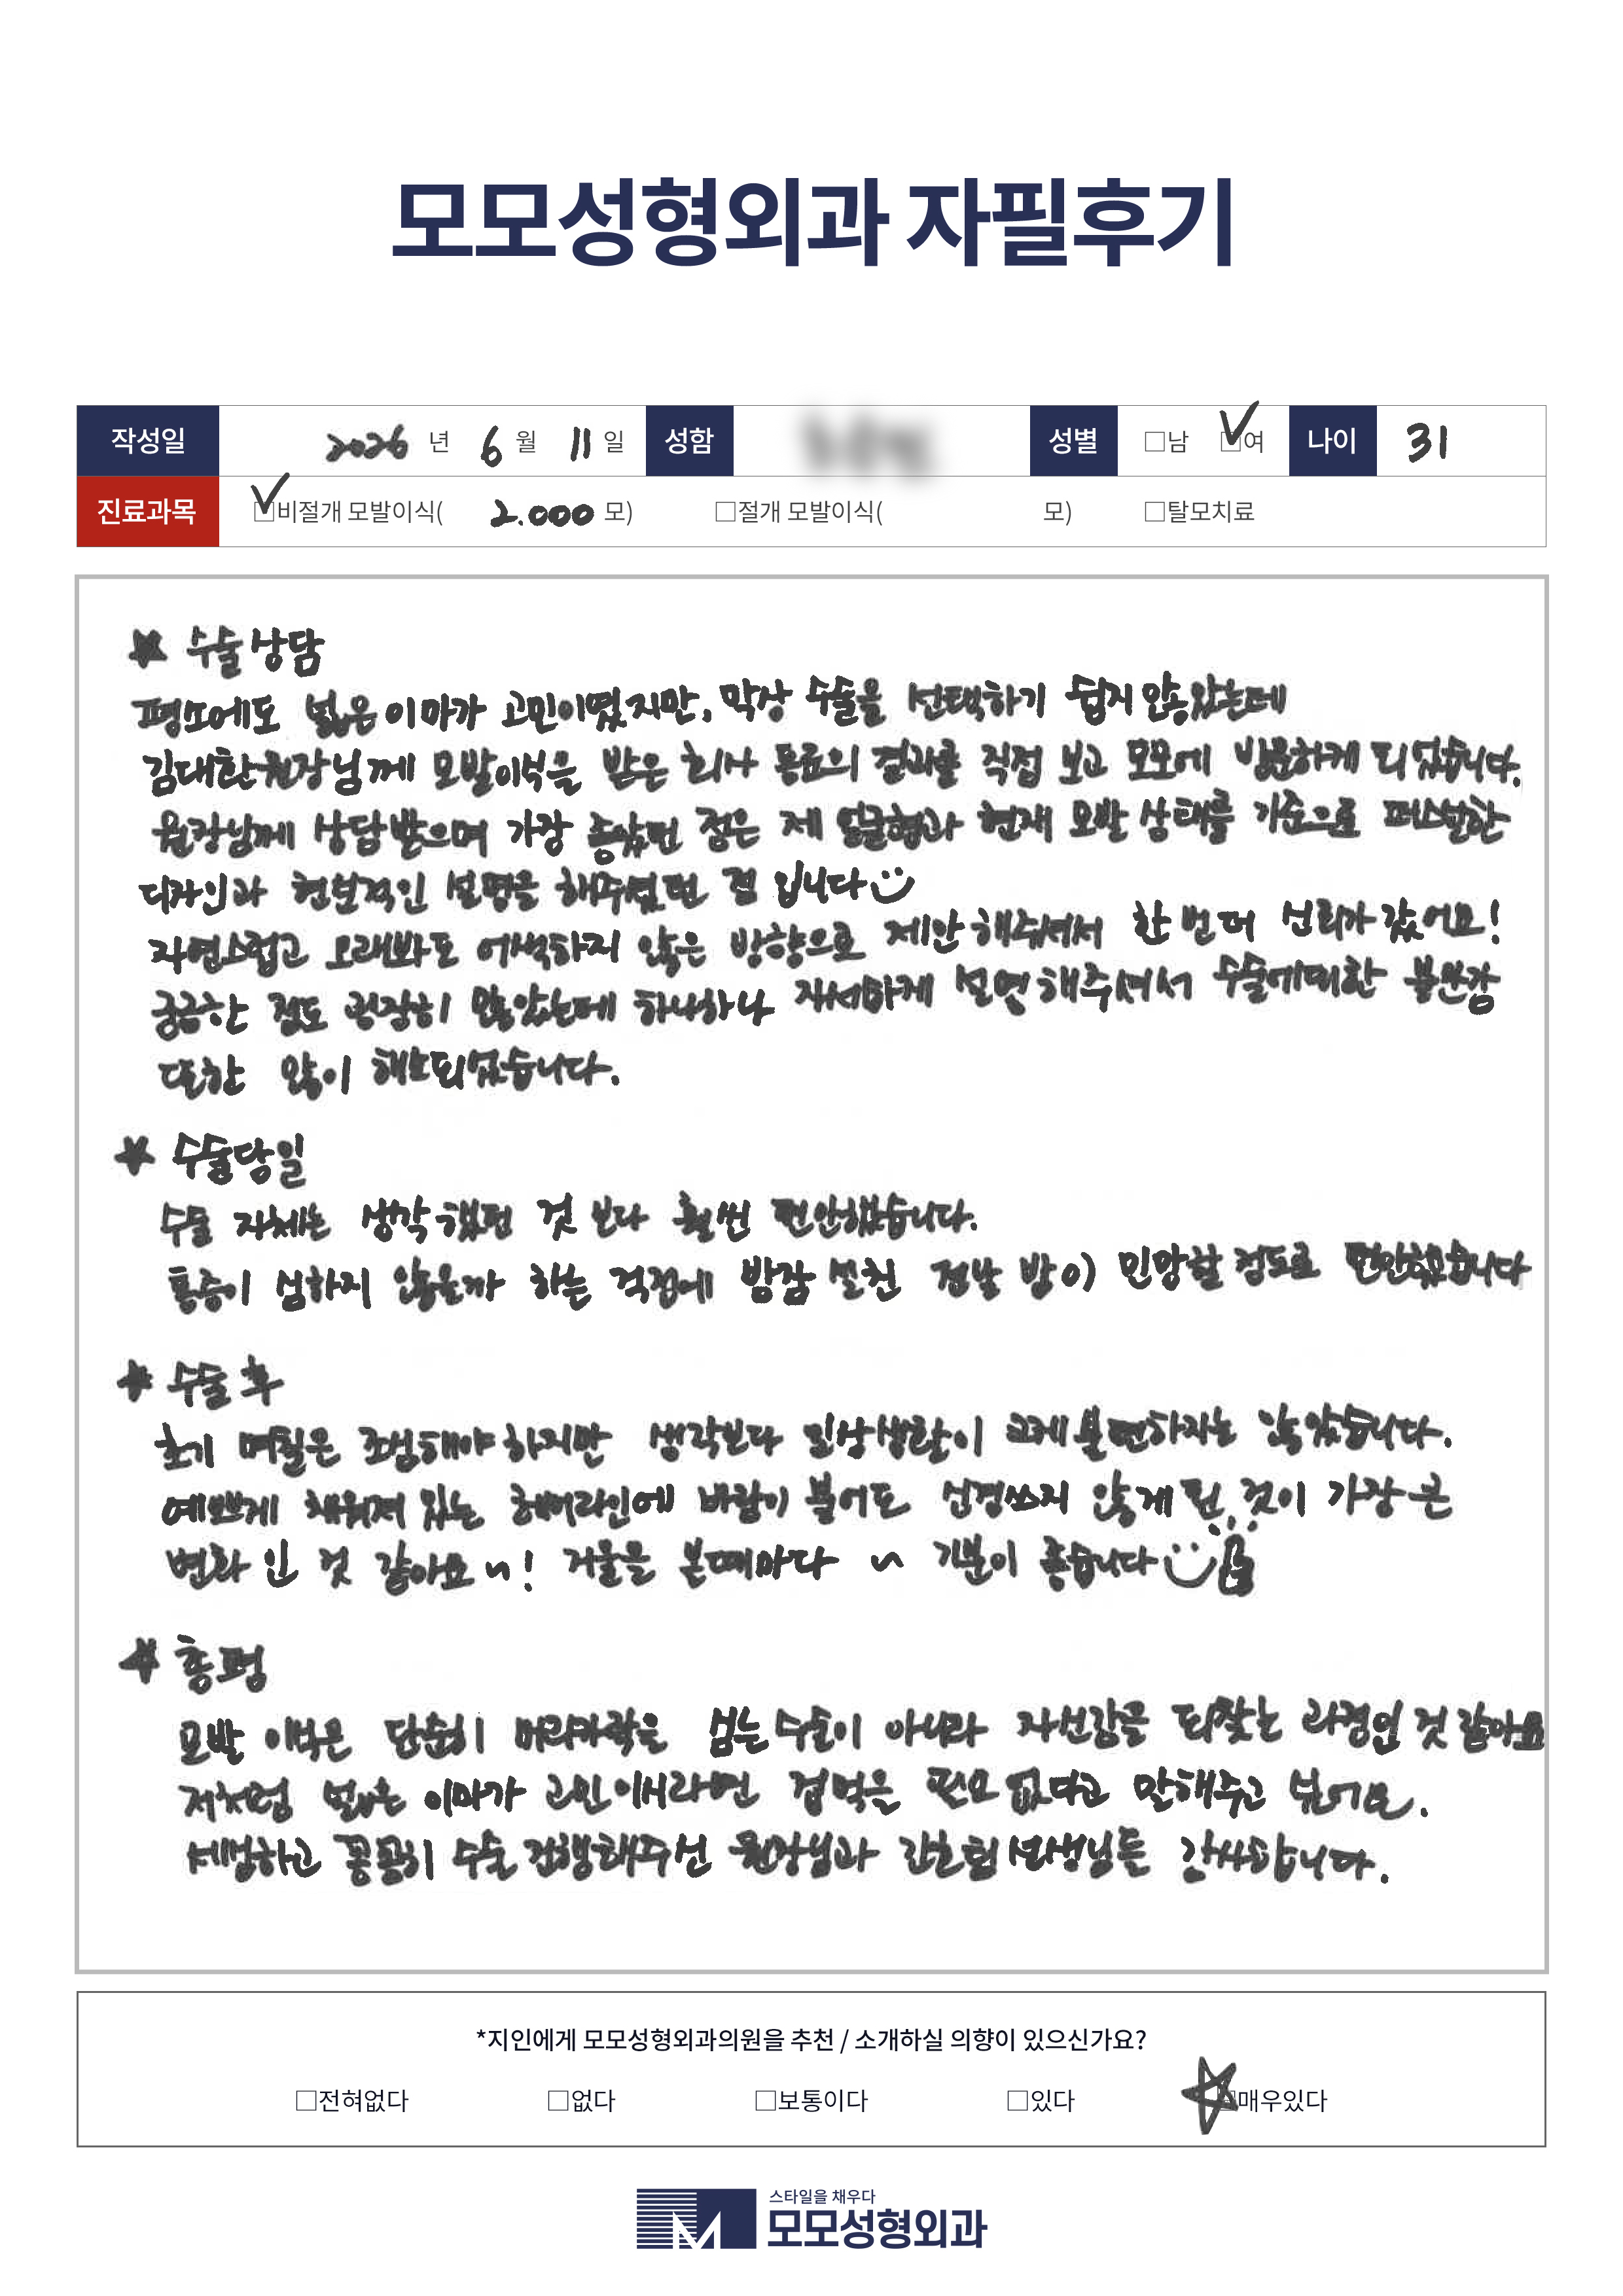 모모성형외과 자필후기
작성일 2026 년 6 월 11 일 성함 성별 □남 □여 나이 31
진료과목 □비절개 모발이식( 2.000 모) □절개 모발이식( 모) □탈모치료
수술상담
평소에도 넓은 이마가 고민이였지만, 막상 수술을 선택하기 쉽지 않았는데
김대환원장님께 모발이식을 받은 회사 동료의 결과를 직접 보고 모모에 방문하게 되었습니다.
원장님께 상담받으며 가장 좋았던 점은 제 얼굴형과 현재 모발 상태를 기준으로 퍼스널한
디자인과 현실적인 설명을 해주셨던 점 입니다
자연스럽고 오래봐도 어색하지 않은 방향으로 제안해주셔서 한번 더 신뢰가 갔어요!
궁금한 점도 굉장히 많았는데 하나하나 자세하게 설명해주셔서 수술에대한 불안감
또한 많이 해소되었습니다.
수술당일
수술 자체는 생각했던 것 보다 훨씬 편안했습니다.
통증이 심하지 않을까 하는 걱정에 밤잠 설친 전날 밤이 민망할 정도로 편안했습니다
수술 후
초기 며칠은 조심해야하지만 생각보다 일상생활이 크게 불편하지는 않았습니다.
예쁘게 채워져 있는 헤어라인에 바람이 불어도 신경쓰지 않게 된 것이 가장 큰
변화 인 것 같아요~! 거울을 볼때마다 ~ 기분이 좋습니다
총평
모발 이식은 단순히 머리카락을 심는 수술이 아니라 자신감을 되찾는 과정인 것 같아요
저처럼 넓은 이마가 고민이시라면 겁먹을 필요 없다고 말해주고 싶어요.
세심하고 꼼꼼히 수술 진행해주신 원장님과 간호팀 선생님들 감사합니다.
*지인에게 모모성형외과의원을 추천 / 소개하실 의향이 있으신가요?
□전혀없다 □없다 □보통이다 □있다 □매우있다
스타일을 채우다
모모성형외과